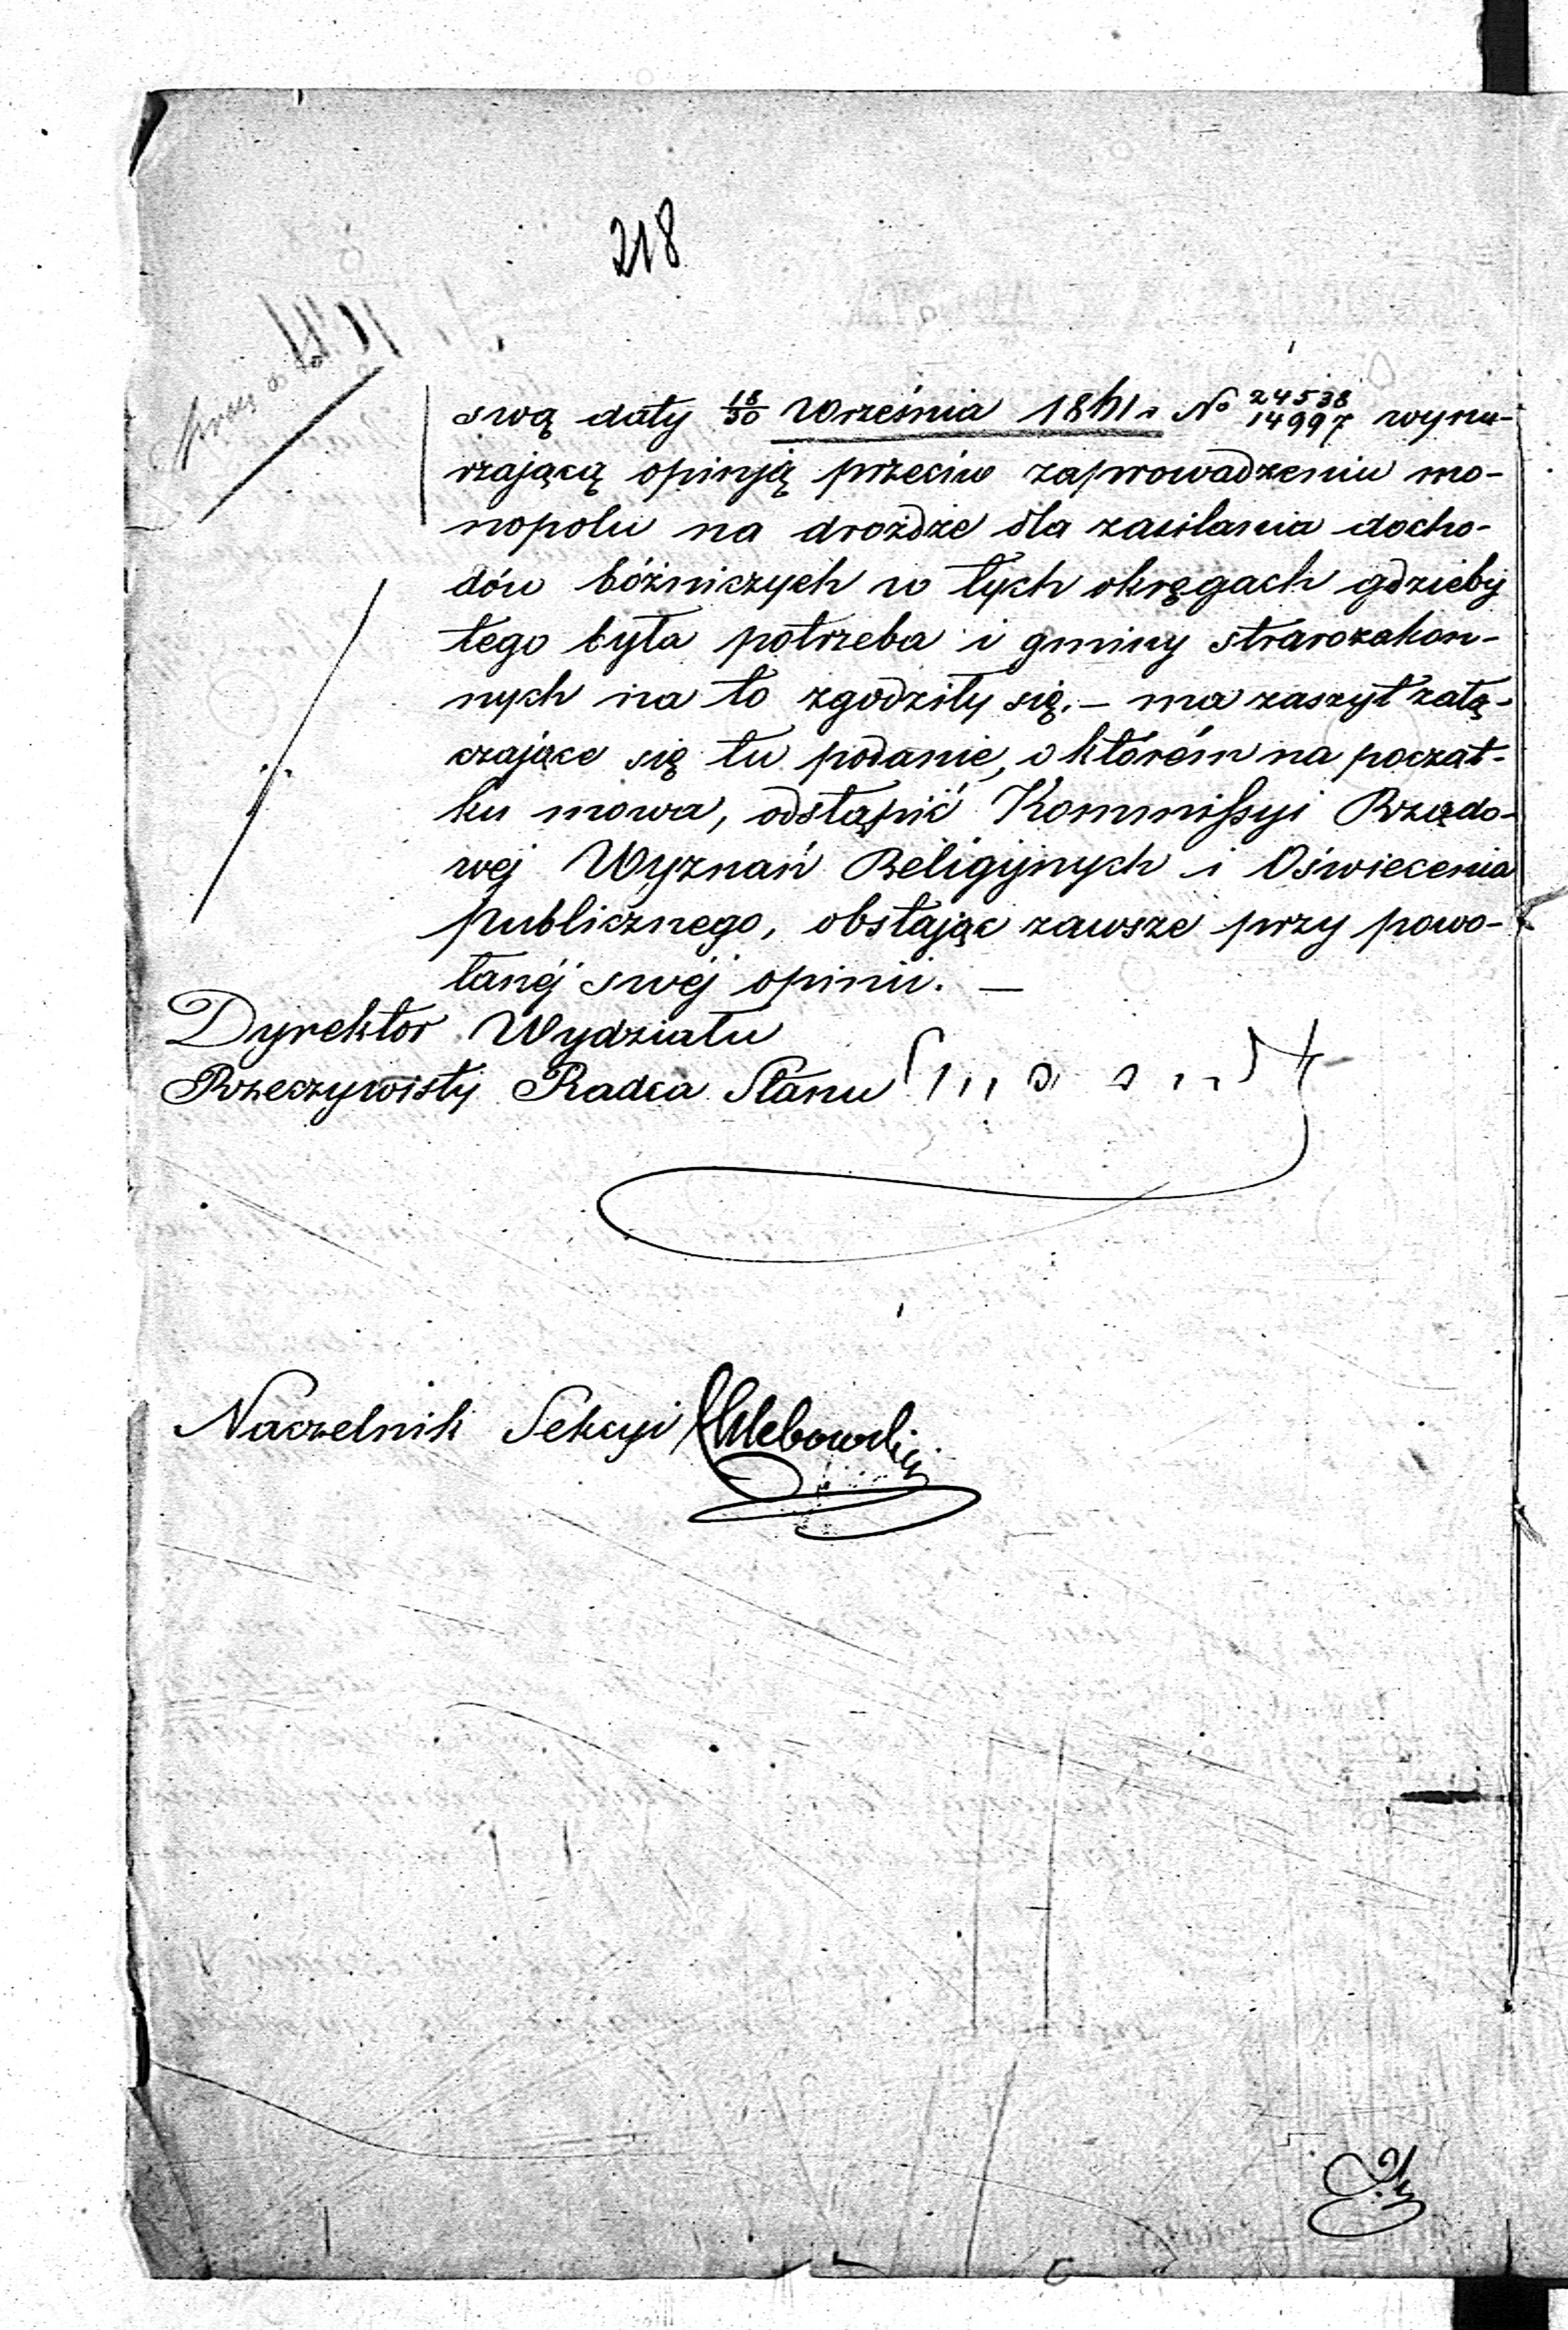 218
swą daty 18/30 Września 1841 r. No 24538/14997 wynu-
rzającą opinją przeciw zaprowadzeniu mo-
nopolu na drożdże dla zasilania docho-
dów bóźniczych w tych okręgach gdzieby
tego była potrzeba i gminy starozakon-
nych na to zgodziły się. — ma zaszyt załą-
czające się tu podanie, o którém na począt-
ku mowa, odstąpić Kommissyi Rządo-
wej Wyznań Religijnych i Oświecenia
publicznego, obstając zawsze przy powo-
łanéj swéj opinii. —
Dyrektor Wydziału
Rzeczywisty Radca Stanu
Naczelnik Sekcyi Chlebowski